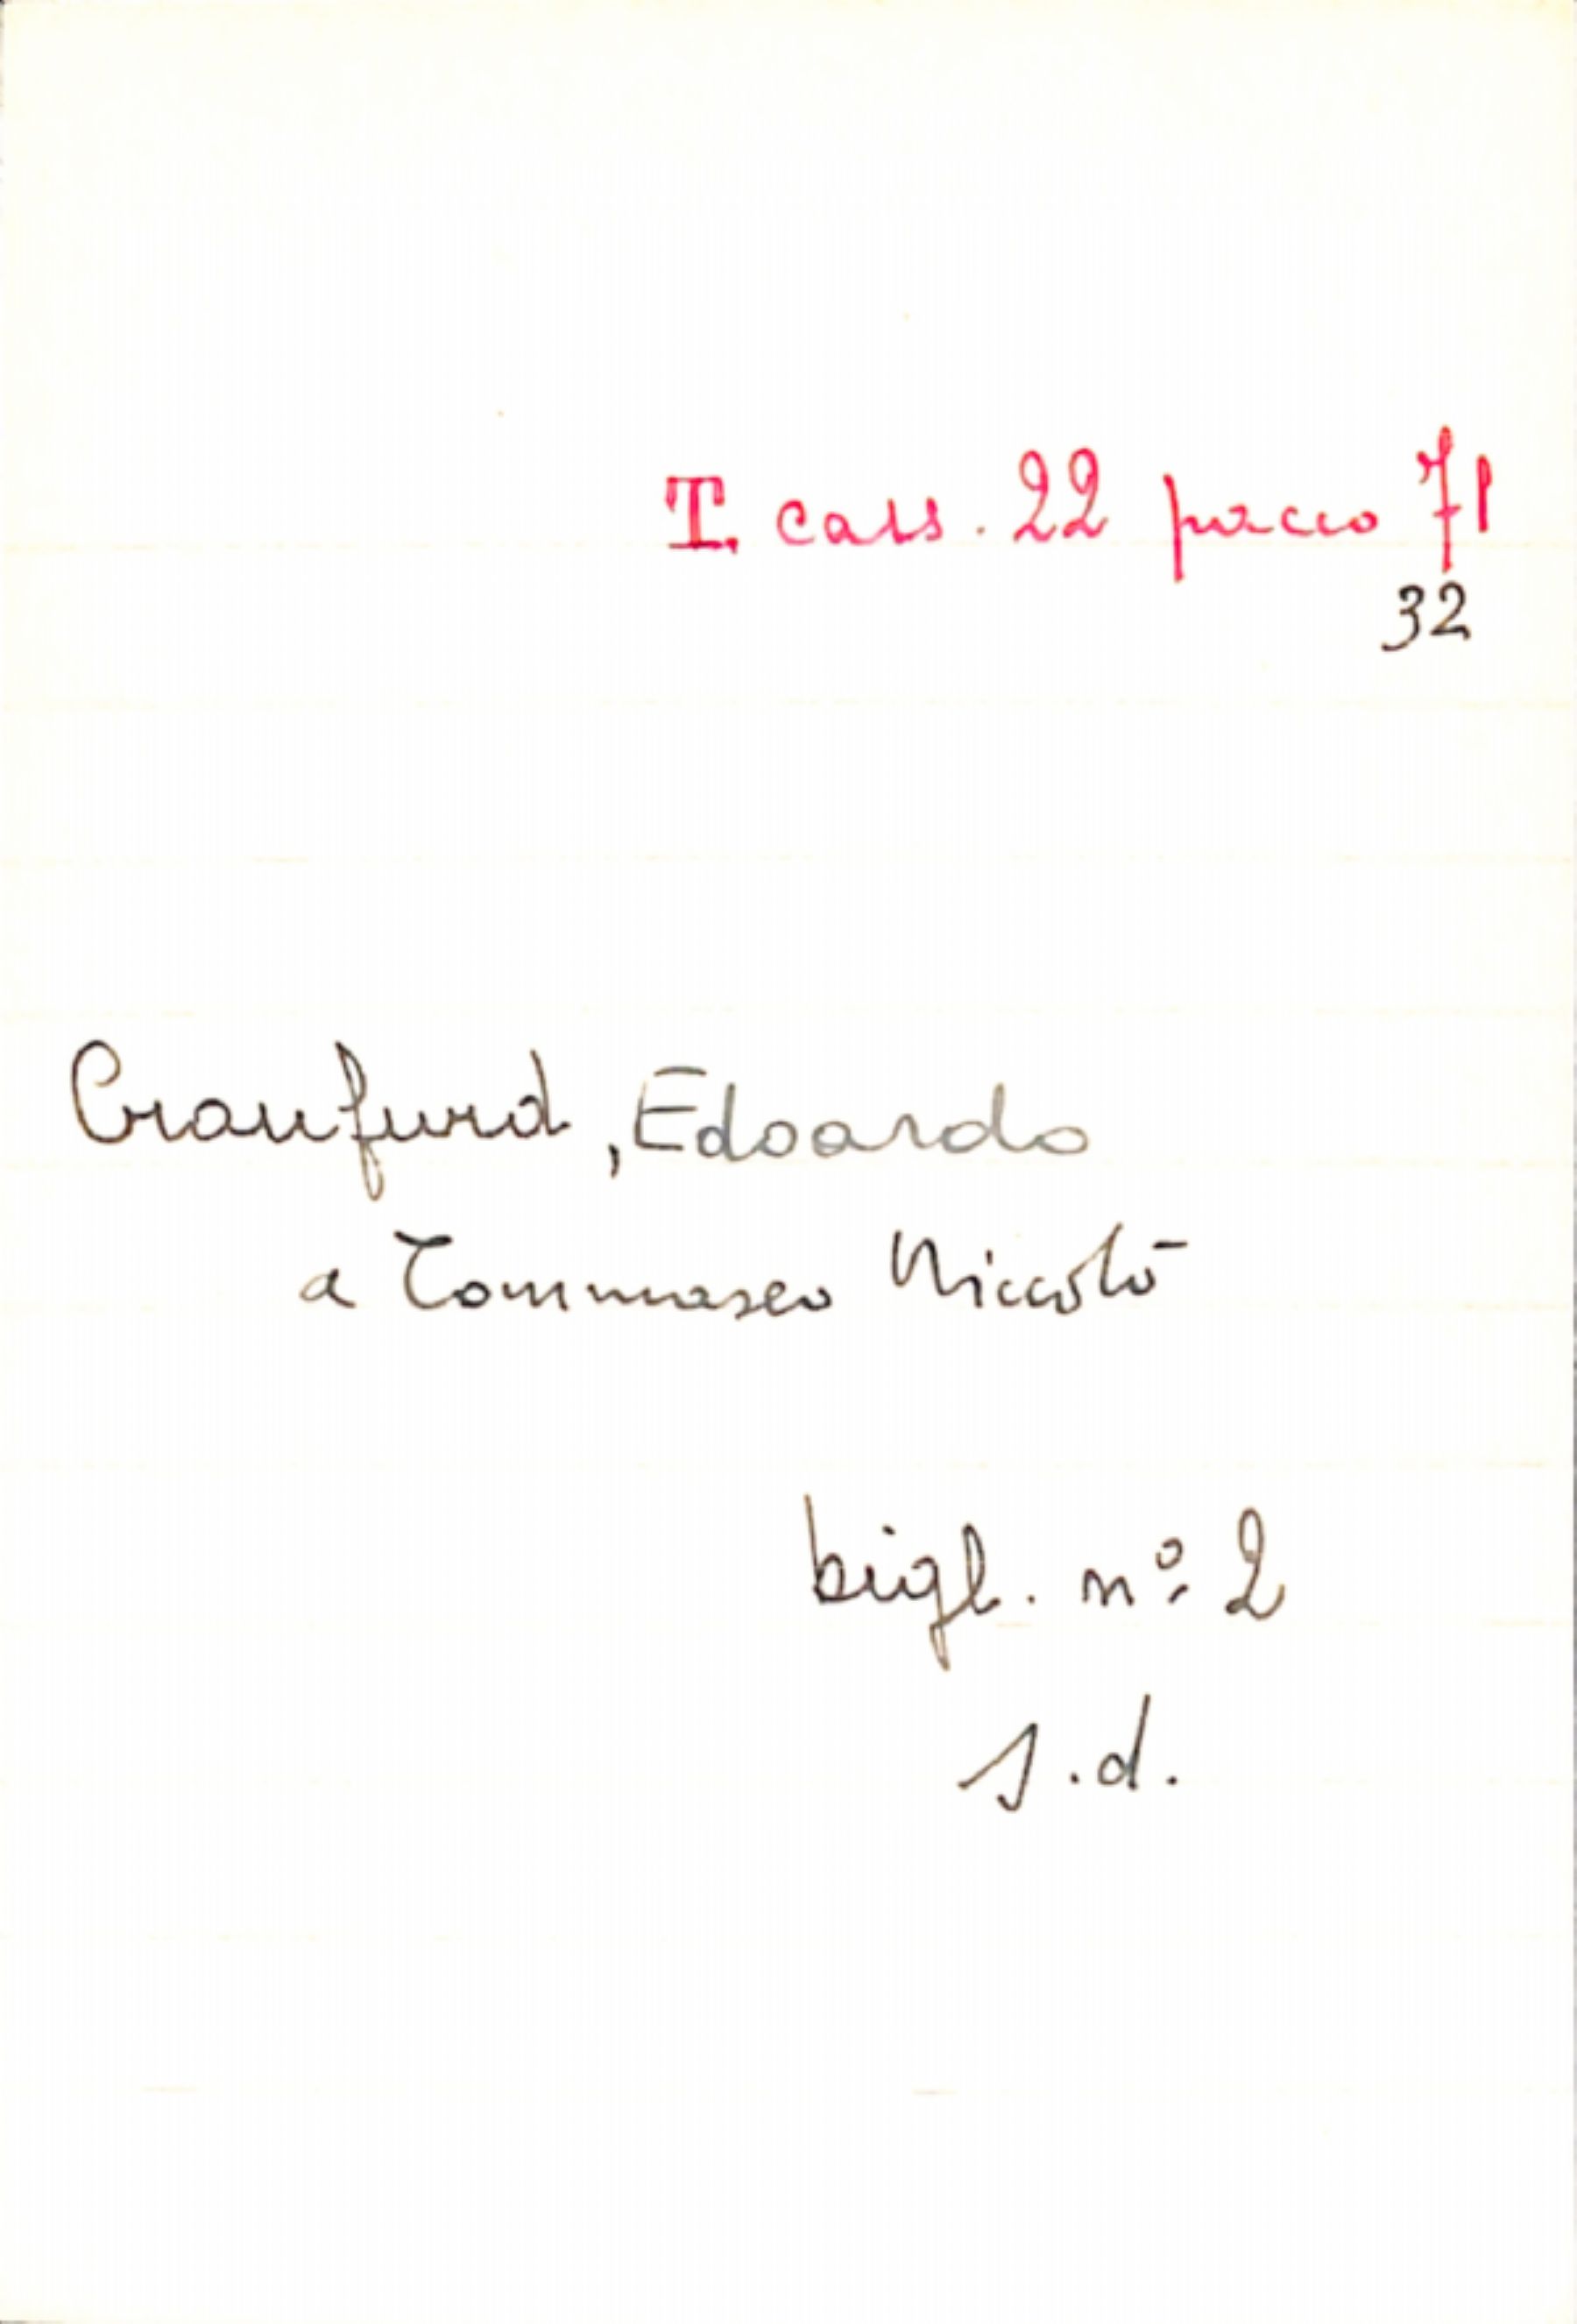 T. cass. 22 pacco 71
32
Craufurd, Edoardo
a Tommaseo Niccolò
bigl. nº 2
s.d.